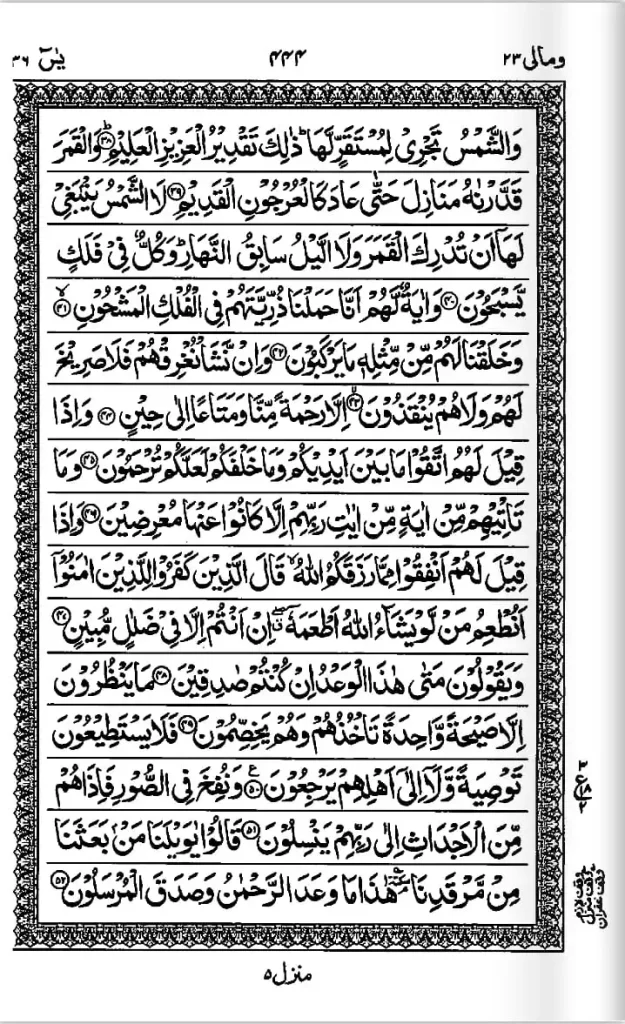 ومالی ۲۳
۴۴۴
یٰسٓ ۳۶
وَالشَّمْسُ تَجْرِیْ لِمُسْتَقَرٍّ لَّهَا ؕ ذٰلِكَ تَقْدِیْرُ الْعَزِیْزِ الْعَلِیْمِ ؕ۳۸ وَالْقَمَرَ
قَدَّرْنٰهُ مَنَازِلَ حَتّٰی عَادَ كَالْعُرْجُوْنِ الْقَدِیْمِ ۳۹ لَا الشَّمْسُ یَنْۢبَغِیْ
لَهَاۤ اَنْ تُدْرِكَ الْقَمَرَ وَلَا الَّیْلُ سَابِقُ النَّهَارِ ؕ وَكُلٌّ فِیْ فَلَكٍ
یَّسْبَحُوْنَ ۴۰ وَاٰیَةٌ لَّهُمْ اَنَّا حَمَلْنَا ذُرِّیَّتَهُمْ فِی الْفُلْكِ الْمَشْحُوْنِ ۙ۴۱
وَخَلَقْنَا لَهُمْ مِّنْ مِّثْلِهٖ مَا یَرْكَبُوْنَ ۴۲ وَاِنْ نَّشَاْ نُغْرِقْهُمْ فَلَا صَرِیْخَ
لَهُمْ وَلَا هُمْ یُنْقَذُوْنَ ۙ۴۳ اِلَّا رَحْمَةً مِّنَّا وَمَتَاعًا اِلٰی حِیْنٍ ۴۴ وَاِذَا
قِیْلَ لَهُمُ اتَّقُوْا مَا بَیْنَ اَیْدِیْكُمْ وَمَا خَلْفَكُمْ لَعَلَّكُمْ تُرْحَمُوْنَ ۴۵ وَمَا
تَاْتِیْهِمْ مِّنْ اٰیَةٍ مِّنْ اٰیٰتِ رَبِّهِمْ اِلَّا كَانُوْا عَنْهَا مُعْرِضِیْنَ ۴۶ وَاِذَا
قِیْلَ لَهُمْ اَنْفِقُوْا مِمَّا رَزَقَكُمُ اللّٰهُ ۙ قَالَ الَّذِیْنَ كَفَرُوْا لِلَّذِیْنَ اٰمَنُوْۤا
اَنُطْعِمُ مَنْ لَّوْ یَشَآءُ اللّٰهُ اَطْعَمَهٗۤ ۖ اِنْ اَنْتُمْ اِلَّا فِیْ ضَلٰلٍ مُّبِیْنٍ ۴۷
وَیَقُوْلُوْنَ مَتٰی هٰذَا الْوَعْدُ اِنْ كُنْتُمْ صٰدِقِیْنَ ۴۸ مَا یَنْظُرُوْنَ
اِلَّا صَیْحَةً وَّاحِدَةً تَاْخُذُهُمْ وَهُمْ یَخِصِّمُوْنَ ۴۹ فَلَا یَسْتَطِیْعُوْنَ
تَوْصِیَةً وَّلَاۤ اِلٰۤی اَهْلِهِمْ یَرْجِعُوْنَ ۠۵۰ وَنُفِخَ فِی الصُّوْرِ فَاِذَا هُمْ
مِّنَ الْاَجْدَاثِ اِلٰی رَبِّهِمْ یَنْسِلُوْنَ ۵۱ قَالُوْا یٰوَیْلَنَا مَنْۢ بَعَثَنَا
مِنْ مَّرْقَدِنَا ۘ هٰذَا مَا وَعَدَ الرَّحْمٰنُ وَصَدَقَ الْمُرْسَلُوْنَ ۵۲
وقف لازم
وقف منزل
وقف غفران
منزل ۵